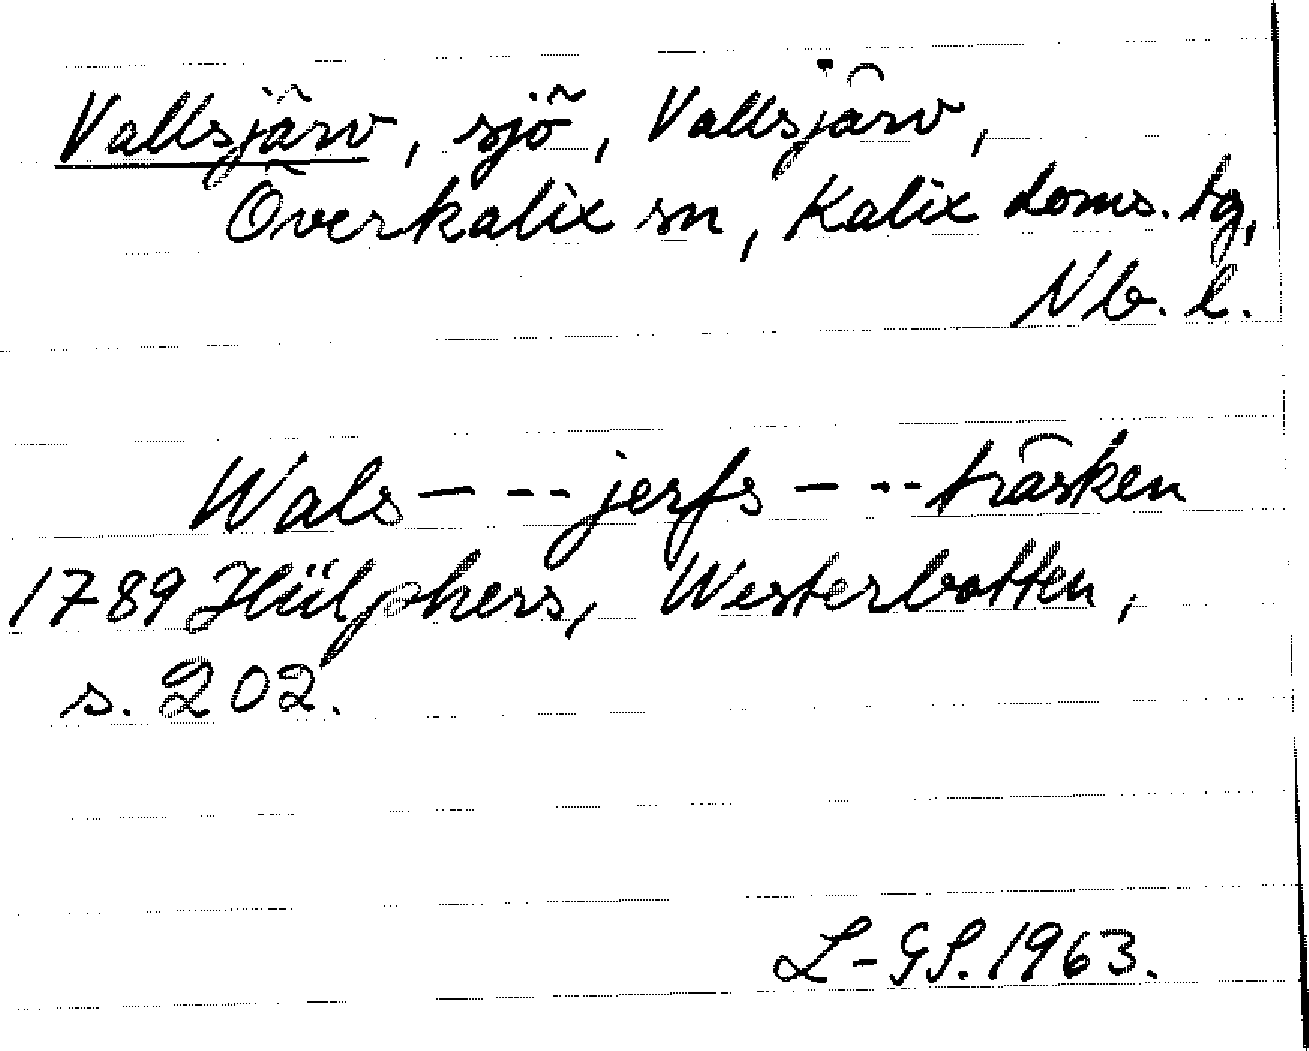 Vallsjärv, sjö, Vallsjärv,
Överkalix sn, Kalix doms. tg,
Nb. l.
Wals---jerfs---träsken
1789 Hülphers, Westerbotten,
s. 202.
L-GS. 1963.